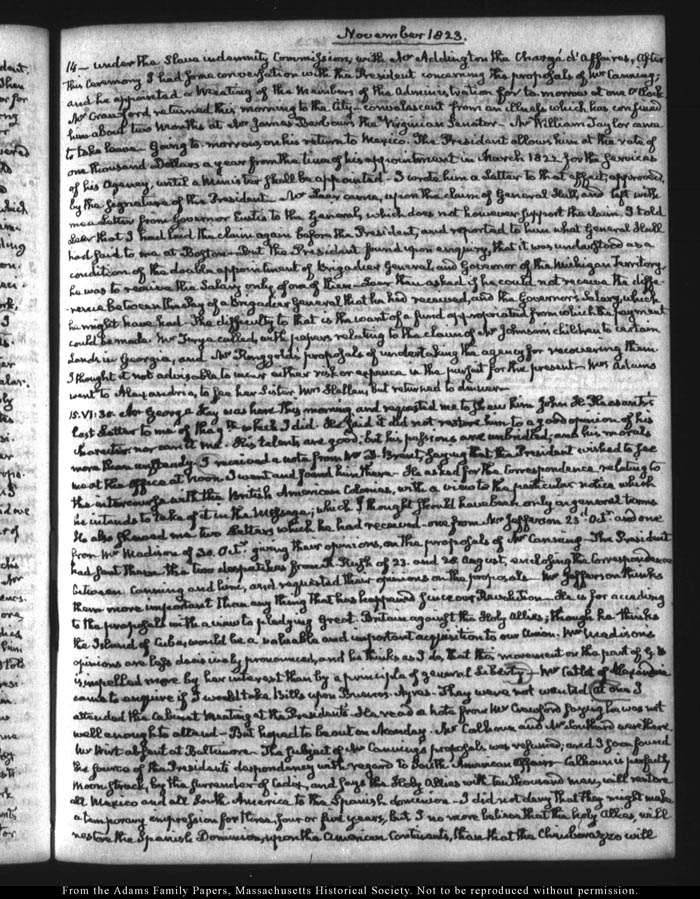 November 1823.
14— under the Slave indemnity Commission, with Mr Addington the Chargé d'Affaires, After
this Ceremony I had some conversation with the President concerning the proposals of Mr Canning;
and he appointed a Meeting of the Members of the Administration for to-morrow at one O'Clock
Mr Crawford returned this morning to the City— convalescent from an illness which has confined
him about two Months at Mr James Barbour's the Virginian Senator— Mr William Taylor came
to take leave— Going to-morrow, on his return to Mexico. The President allows him at the rate of
one thousand Dollars a year from the time of his appointment in March 1822 for the services
of his Agency, until a Minister shall be appointed— I wrote him a Letter to that effect, approved,
by the signature of the President— Mr Lear came, upon the claim of General Hull, and left with
me a Letter from Governor Eustis to the General, which does not however support the claim. I told
Lear that I had laid the claim again before the President, and reported to him what General Hull
had said to me at Boston— But the President found upon enquiry, that it was understood as a
condition of the double appointment of Brigadier General, and Governor of the Michigan Territory,
he was to receive the Salary only of one of them— Lear then asked if he could not receive the diffe-
-rence between the Pay of a Brigadier General that he had received, and the Governor's Salary, which
he might have had— The difficulty to that is the want of a fund appropriated from which the payment
could be made. Mr called, with papers relating to the claim of Mr Johnson's children to certain
Lands in Georgia, and Mr Ringgold's proposals of undertaking the agency for recovering them
I thought it not advisable to incur either risk or expence in the pursuit for the present— Mrs Adams
went to Alexandria, to see her Sister Mrs but returned to dinner—
15. VI:30. Mr George Hay was here this morning and requested me to shew him John H. Pleasants's
last Letter to me of the which I did. He said it did not restore him to a good opinion of his
character nor can it me. His talents are good; but his passions are unbridled, and his morals
more than unsteady— I received a note from Mr D. Brent, saying that the President wished to see
me at the Office at Noon. I went and found him there— He asked for the Correspondence relating to
the intercourse with the British American Colonies, with a view to the particular notice which
he intends to take of it in the Message; which I thought should have been only in general terms
He also shewed me two Letters which he had received— one from Mr Jefferson 23d Octr. and one
from Mr Madison of 30. Octr. giving their opinions, on the proposals of Mr Canning— The President
had sent them the two despatches from R. Rush of 23. and 28 August, enclosing the Correspondence
between Canning and him, and requested their opinions on the proposals— Mr Jefferson thinks
them more important than any thing that has happened since our Revolution— He is for acceding
to the proposals with a view to pledging Great-Britain against the Holy Allies; though he thinks
the Island of Cuba, would be a valuable and important acquisition to our Union. Mr Madison's
opinions are less decisively pronounced, and he thinks as I do, that this movement on the part of G. B
is impelled more by her interest than by a principle of general Liberty— Mr Catlet of Alexandria
came to enquire if I would take bills upon Buenos-Ayres— They were not wanted at one I
attended the Cabinet Meeting at the President's. He read a Note from Mr Crawford saying he was not
well enough to attend— But hoped to be out on Monday. Mr Calhoun and Mr Southard were there
Mr Wirt absent at Baltimore— The subject of Mr Canning's proposals was resumed; and I soon found
the source of the President's despondency with regard to South-American affairs— Calhoun is perfectly
Moon-struck, by the surrender of Cadiz, and says the Holy Allies with ten thousand men, will restore
all Mexico and all South-America to the Spanish dominion— I did not deny that they might make
a temporary impression for three, four or five years, but I no more believe that the holy Allies, will
restore the Spanish Dominion, upon the American Continents, than that the Chimborazzo will
From the Adams Family Papers, Massachusetts Historical Society. Not to be reproduced without permission.